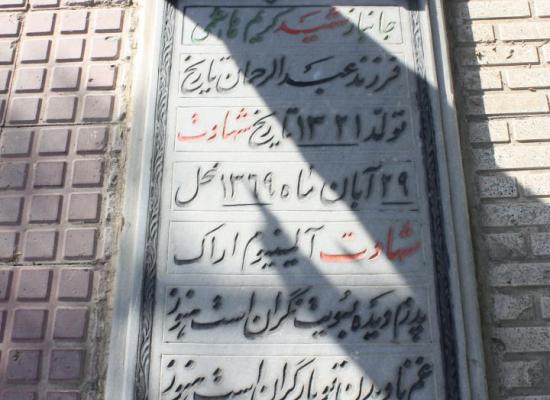 جانباز شهید کریم کاظمی
فرزند عبدالرحمان تاریخ
تولد ۱۳۲۱ تاریخ شهادت
۲۹ آبان ماه ۱۳۶۹ محل
شهادت آلمینیوم اراک
پدرم دیده بسویت نگران است هنوز
غم نادیدن تو بار گران است هنوز